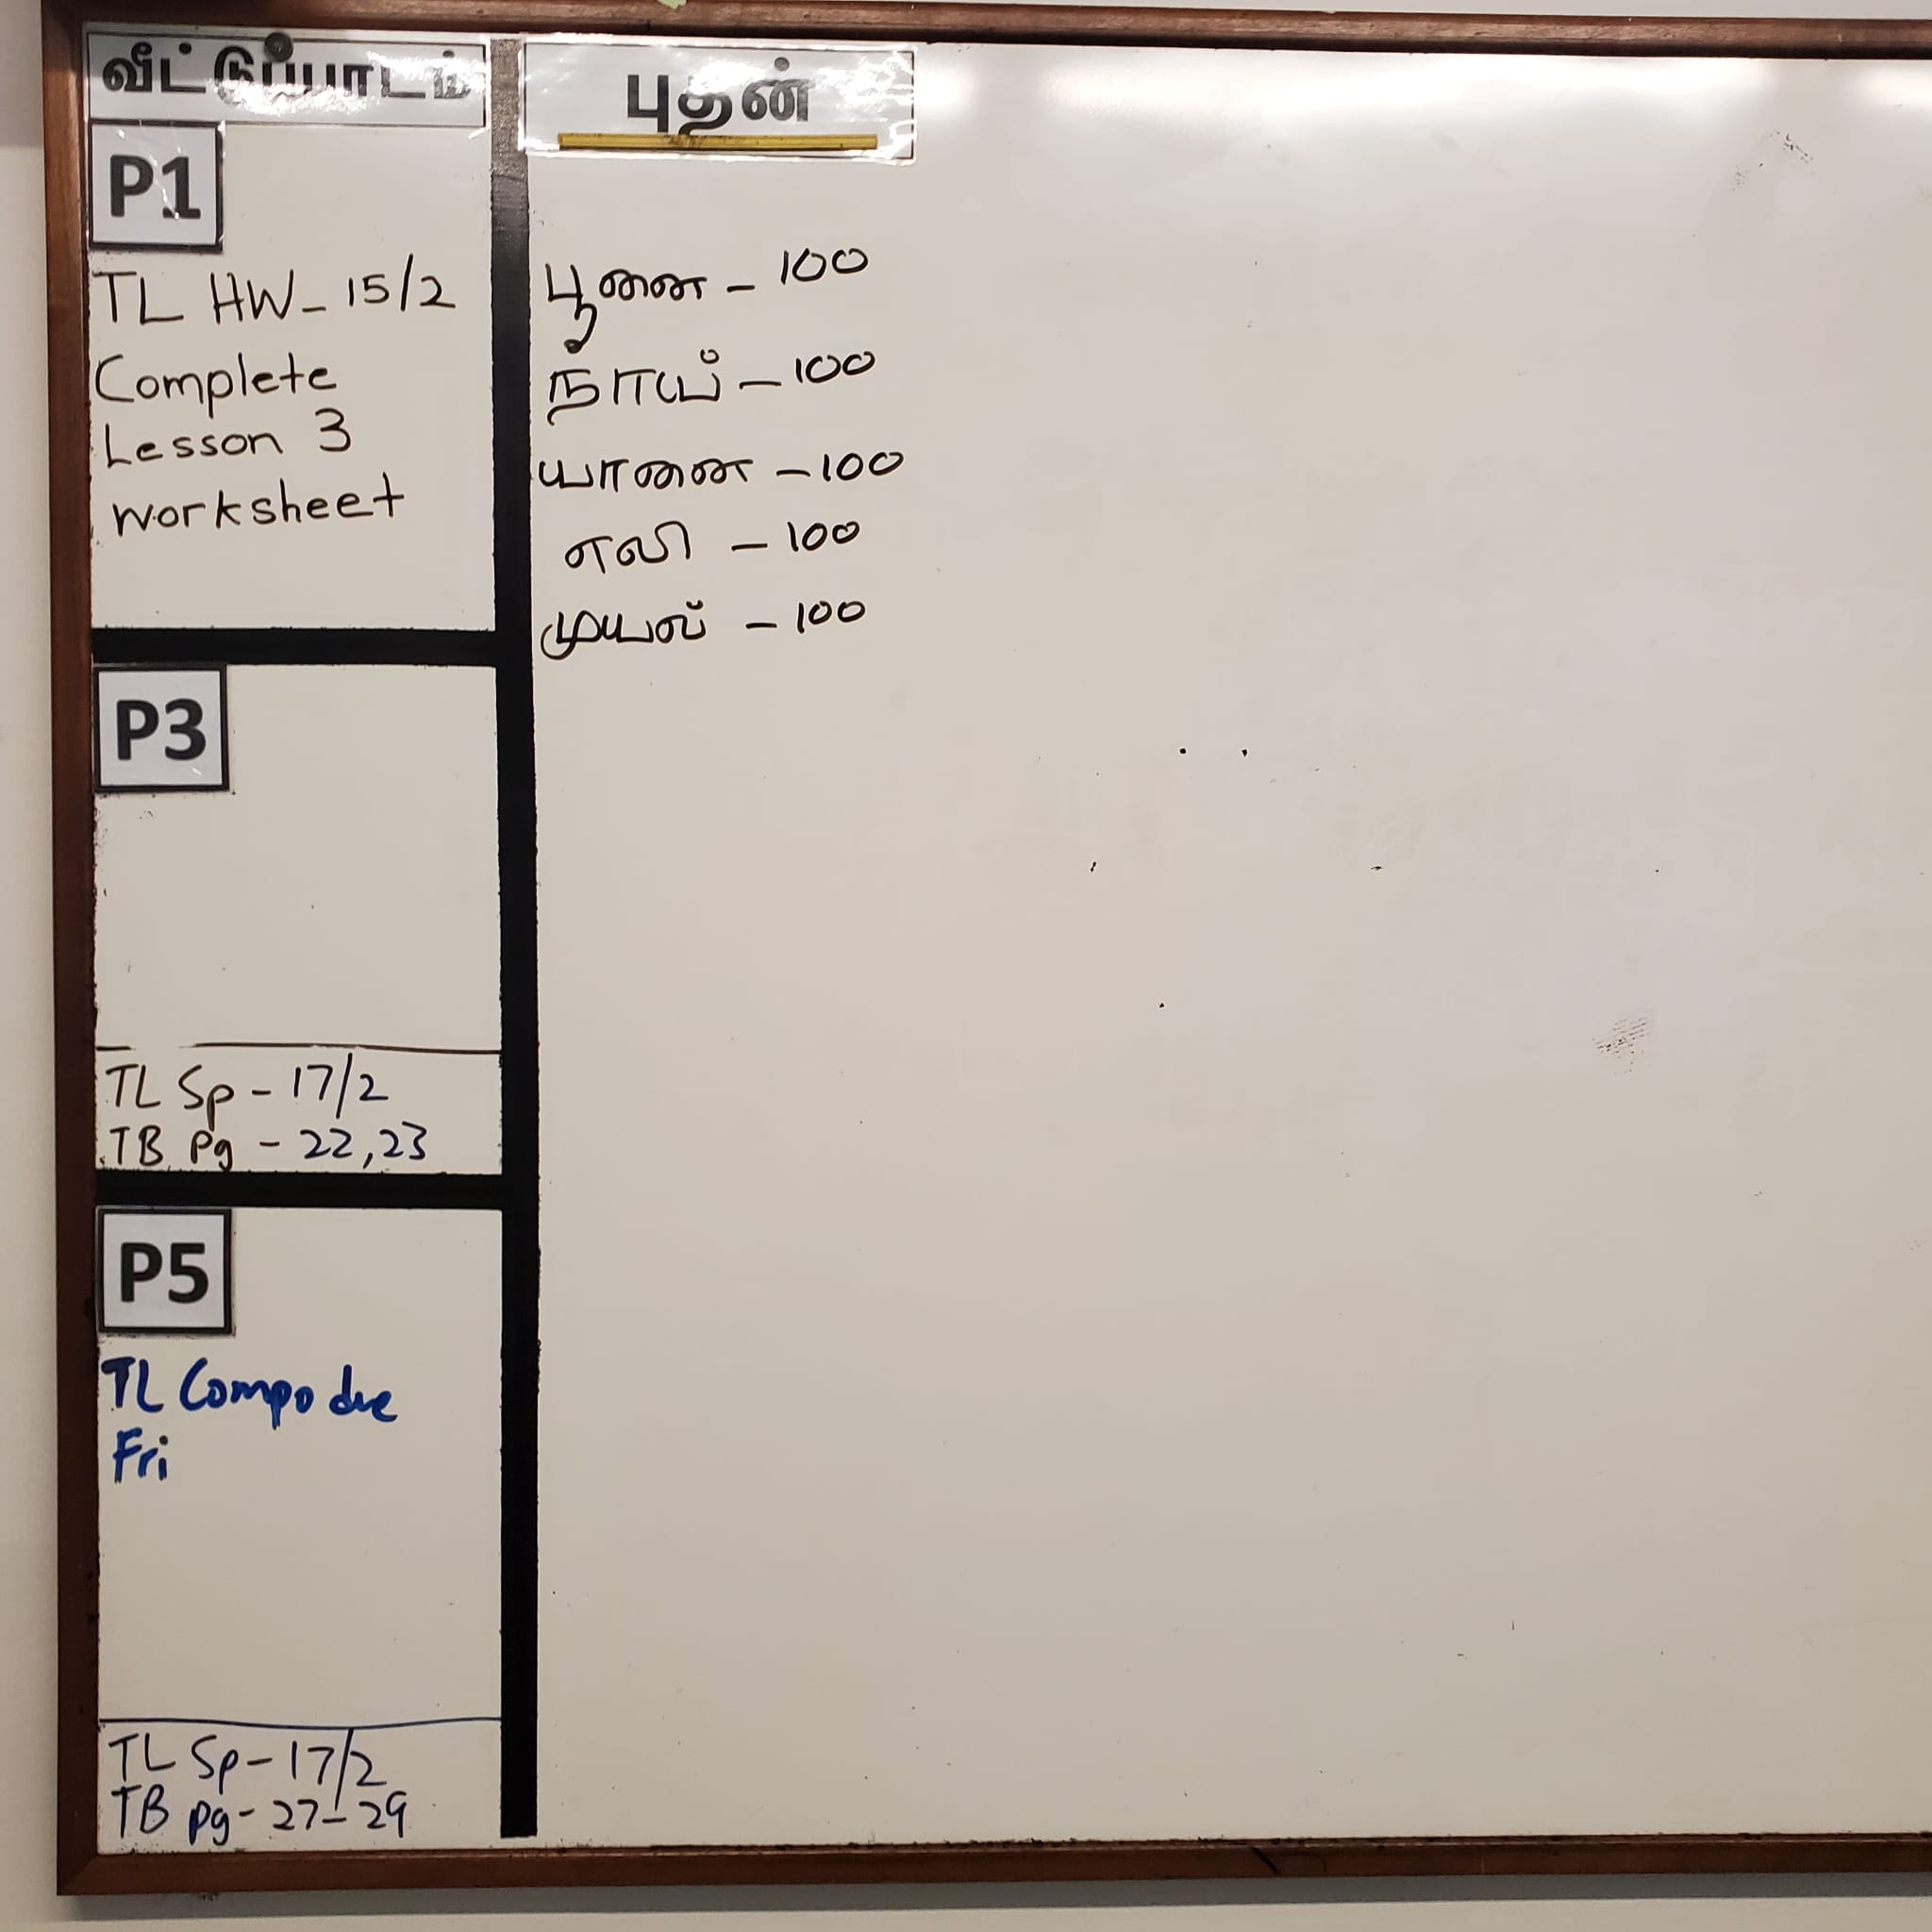 வீட்டுப்பாடம்
P1
TL HW - 15/2
Complete
Lesson 3
worksheet
P3
TL Sp - 17/2
TB Pg - 22,23
P5
TL Compo due
Fri
TL Sp - 17/2
TB pg - 27-29
புதன்
பூனை - 100
நாய் - 100
யானை - 100
எலி - 100
முயல் - 100